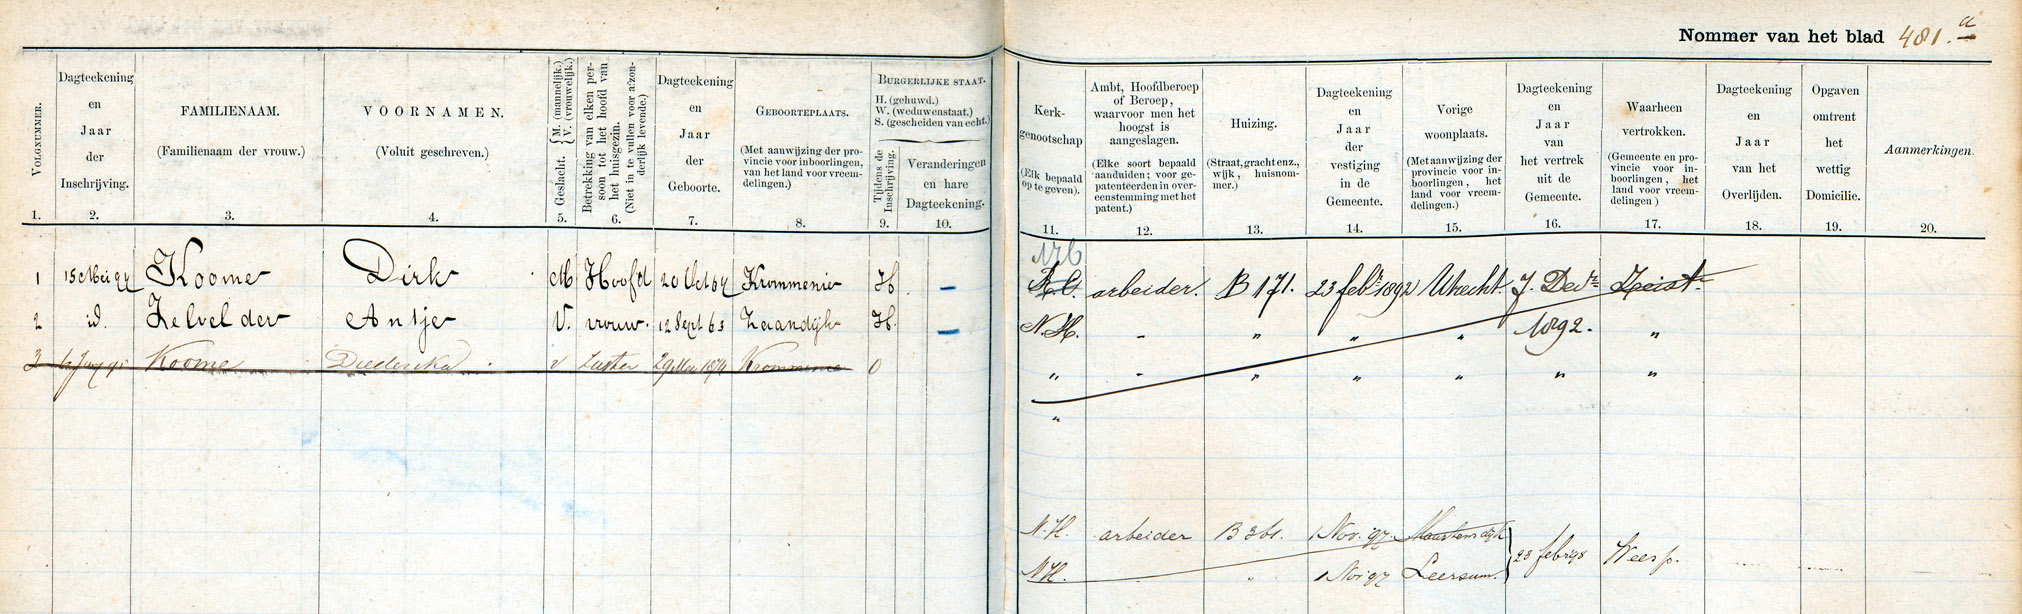 Nommer van het blad 481. a
VOLGNUMMER.
1.
Dagteekening
en
Jaar
der
Inschrijving.
2.
FAMILIENAAM.
(Familienaam der vrouw.)
3.
VOORNAMEN.
(Voluit geschreven.)
4.
Geslacht. { M. (mannelijk.)
V. (vrouwelijk.)
5.
Betrekking van elken per-
soon tot het hoofd van
het huisgezin.
(Niet in te vullen voor afzon-
derlijk levende.)
6.
Dagteekening
en
Jaar
der
Geboorte.
7.
GEBOORTEPLAATS.
(Met aanwijzing der pro-
vincie voor inboorlingen,
van het land voor vreem-
delingen.)
8.
BURGERLIJKE STAAT.
H. (gehuwd.)
W. (weduwenstaat.)
S. (gescheiden van echt.)
Tijdens de
Inschrijving.
9.
Veranderingen
en hare
Dagteekening.
10.
Kerk-
genootschap
(Elk bepaald
op te geven).
11.
Ambt, Hoofdberoep
of Beroep,
waarvoor men het
hoogst is
aangeslagen.
(Elke soort bepaald
aanduiden; voor ge-
patenteerden in over-
eenstemming met het
patent.)
12.
Huizing.
(Straat, gracht enz.,
wijk, huisnom-
mer.)
13.
Dagteekening
en
Jaar
der
vestiging
in de
Gemeente.
14.
Vorige
woonplaats.
(Met aanwijzing der
provincie voor in-
boorlingen, het
land voor vreem-
delingen.)
15.
Dagteekening
en
Jaar
van
het vertrek
uit de
Gemeente.
16.
Waarheen
vertrokken.
(Gemeente en pro-
vincie voor in-
boorlingen, het
land voor vreem-
delingen)
17.
Dagteekening
en
Jaar
van het
Overlijden.
18.
Opgaven
omtrent
het
wettig
Domicilie.
19.
Aanmerkingen.
20.
1 15 Mei 92 Koome Dirk M Hoofd 20 Oct 67 Krommenie H. –
arbeider. B 171. 23 febr 1892 Utrecht. 7. Decr Zeist
2 id. Zelvelder Antje V. vrouw. 12 Sept 63 Zaandijk H. –
N.H. - " " " 1892. "
3 Koome Diederika v zuster 29 Mei 1874 Krommenie O
" - " " " " "
"
N.H. arbeider B 361. 1 Nov. 97. Maartensdijk
N.H. " 1 Nov 97 Leersum. } 23 febr 98 Weesp.